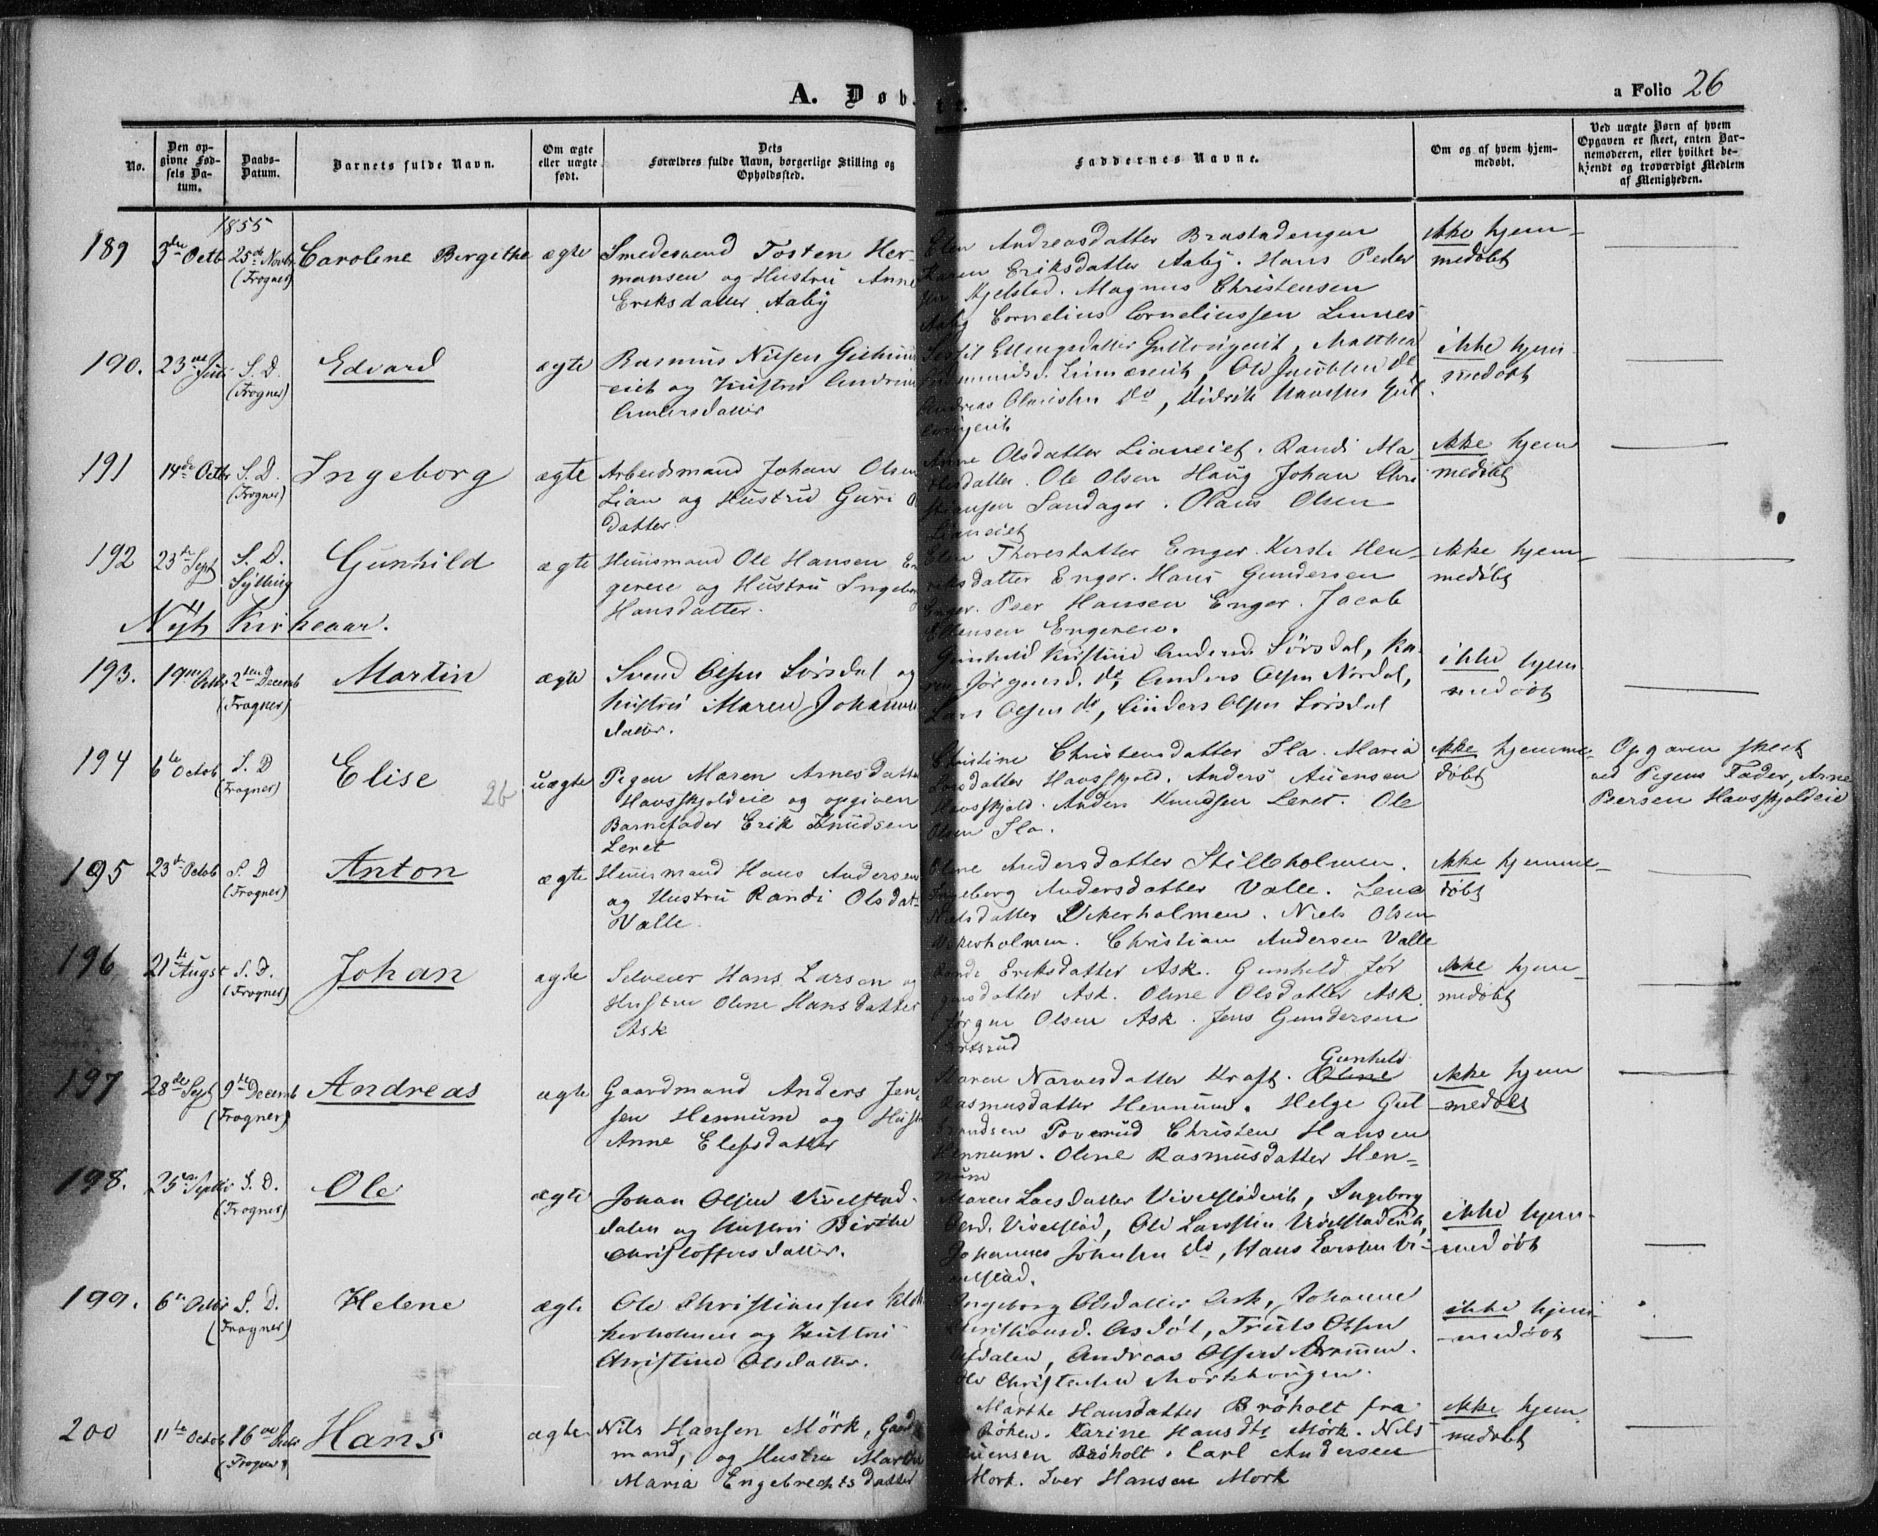 A. Døb
a Folio 26
No.
Den opgivne Fødsels Datum.
Daabs-Datum.
Barnets fulde Navn.
Om ægte eller uægte født.
Dets Forældres fulde Navn, borgerlige Stilling og Opholdssted.
Faddernes Navne.
Om og af hvem hjemmedøbt.
Ved uægte Børn af hvem Opgaven er skeet, enten Barnemoderen, eller hvilket bekjendt og troværdigt Medlem af Menigheden.
1855
189 3die Octb 25de Novbr (Frogner) Carolene Bergithe ægte
Smedesvend Tosten Her-
mansen og Hustru Anne
Eriksdatter Aaby
Andreasdatter Brastadengen
Eriksdatter Aaby. Hans Peder
Kjelstad. Magnus Christensen
Aaby Cornelius Corneliussen Linnes
ikke hjem-
medøbt
190. 23 S. D. (Frogner) Edvard ægte
Rasmus Nilsen
eiet og Hustru
ikke hjem
medøbt
191 14de Octbr S. D. (Frogner) Ingeborg ægte
Arbeidsmand Johan Olsen
Lian og Hustru Guri
datter
Anne Olsdatter Lianeiet. Randi Ma-
datter. Ole Olsen Haug Johan Chri
stiansen Sandager. Olaus Olsen
Lianeiet
ikke hjem
medøbt
192 23de Sept S. D. Sylling Gunhild ægte
Huusmand Ole Hansen En
gereie og Hustru Ingeborg
Hansdatter.
Thoresdatter Enger. Kirsti Hen-
riksdatter Enger. Hans Gundersen
Enger. Peer Hansen Enger. Jacob
Ellensen Engereie.
ikke hjem-
medøbt
Nyt Kirkeaar.
193. 19de Octbr 2den Decemb (Frogner) Martin ægte
Svend Olsen Sørsdal og
Hustru Maren Johannes
datter.
Gunhild Kristine Andersd. Sørsdal, Ka-
ren Jørgensd. do, Anders Olsen Nordal,
Lars Olsen do, Anders Olsen Sørsdal
ikke hjem
medøbt
194 6te Octob S. D (Frogner) Elise 26 uægte
Pigen Maren Arnesdatter
Havsskjoldeie og opgiven
Barnefader Erik Knudsen
Leret
Christine Christensdatter Flo. Maria
Larsdatter Havsskjold. Anders Auensen
Havsskjold. Anders Knudsen Leret. Ole
Olsen Flo.
ikke hjemme-
døbt
Opgaven skeet
ved Pigens Fader, Arne
Peersen Havsskjoldeie
195 23de Octob S. D (Frogner) Anton ægte
Huusmand Hans Andersen
og Hustru Randi Olsdat-
Valle.
Oline Andersdatter Stilleholmen.
Ingeborg Andersdatter Valle. Lena
Nielsdatter Vikerholmen. Niels Olsen
Vikerholmen. Christian Andersen Valle
ikke hjemme-
døbt
196 21de Augst S. D. (Frogner) Johan ægte
Selveier Hans Larsen og
Hustru Oline Hansdatter
Ask
Randi Eriksdatter Ask. Gunhild Jør
gensdatter Ask. Oline Olsdatter Ask.
Jørgen Olsen Ask. Jens Gundersen
ikke hjem-
medøbt
197 28de Sept 9de Decemb (Frogner) Andreas ægte
Gaardmand Anders Jen-
sen Hennum og Hust
Anne Elefsdatter
Gunhild
Maren Narvesdatter Kraft. Oline
Rasmusdatter Hennum. Helge Gul
brandsen Poverud Christen Hansen
Hennum. Oline Rasmusdatter Hen-
num
ikke hjem
medøbt
198. 25de Septbr S. D. (Frogner) Ole ægte
Johan Olsen Vivelstad-
dalen og Hustru Birthe
Christoffersdatter.
Maren Larsdatter Vivelstadeiet, Ingeborg
Olesd. Vivelstad, Ole Larssen Vivelstadeiet,
Johannes Johnsen do, Hans Larssen Vi-
velstad.
ikke hjem-
medøbt
199. 6te Octbr S. D. (Frogner) Helene ægte
Ole Christiansen
og Hustru
Christine Olsdatter.
Ingeborg Olsdatter Ask, Johanne
Christiansd. Asdøl, Truls Olsen
Asdalen, Andreas Olsen
Ole Christensen Mørkhougen.
ikke hjem
medøbt
200 11te Octob 16de (Frogner) Hans ægte
Nils Hansen Mörk, Gaard
mand, og Hustru Marthe
Maria Engebrechtsdatter
Marthe Hansdatter Bröholt fra
Röken. Karine Hansdtr Mörk. Nils
Auensen Bröholt. Carl Andersen
Mork. Iver Hansen Mork
ikke hjem
medøbt